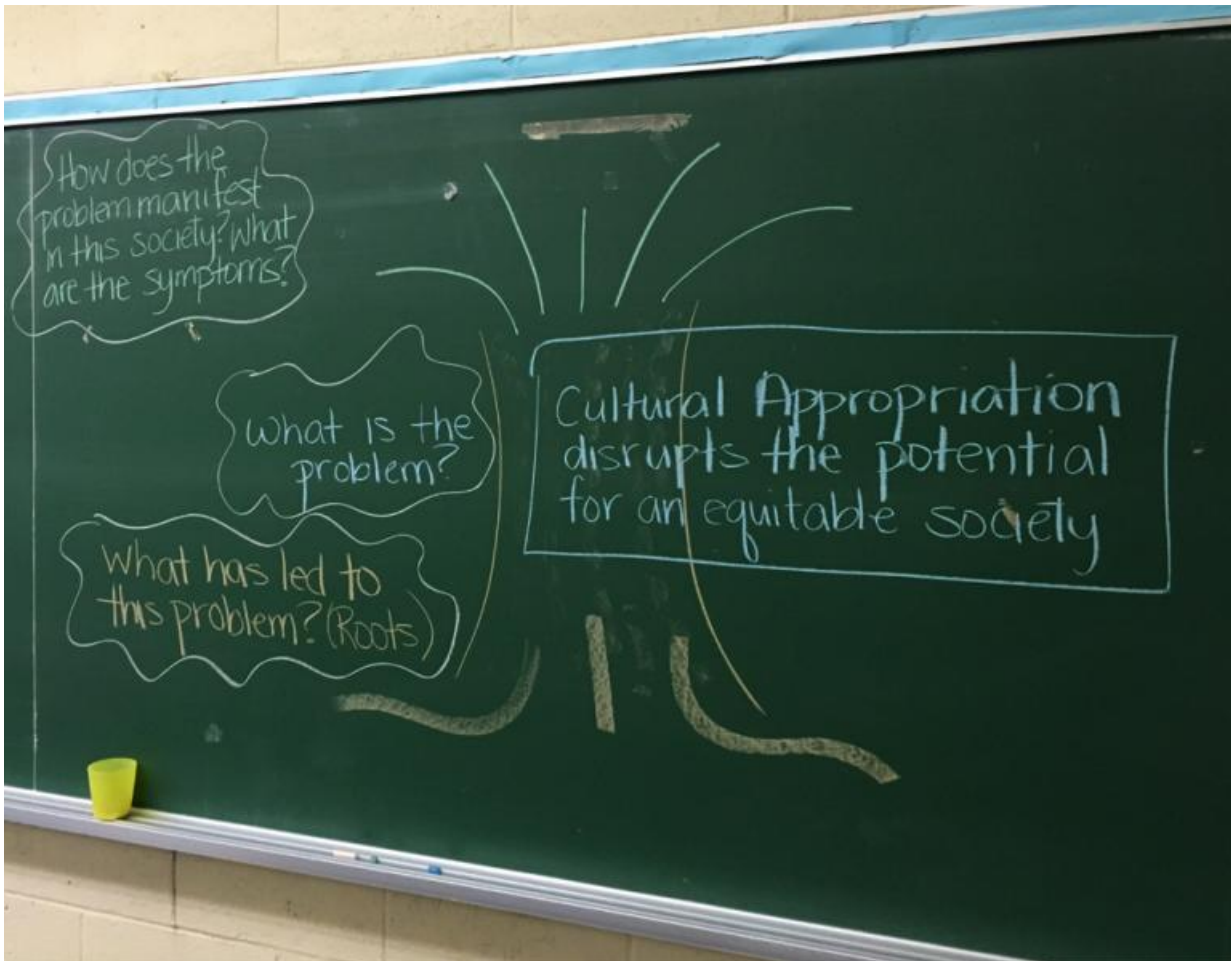 How does the
problem manifest
in this society? What
are the symptoms?
What is the
problem?
What has led to
this problem? (Roots)
Cultural Appropriation
disrupts the potential
for an equitable society